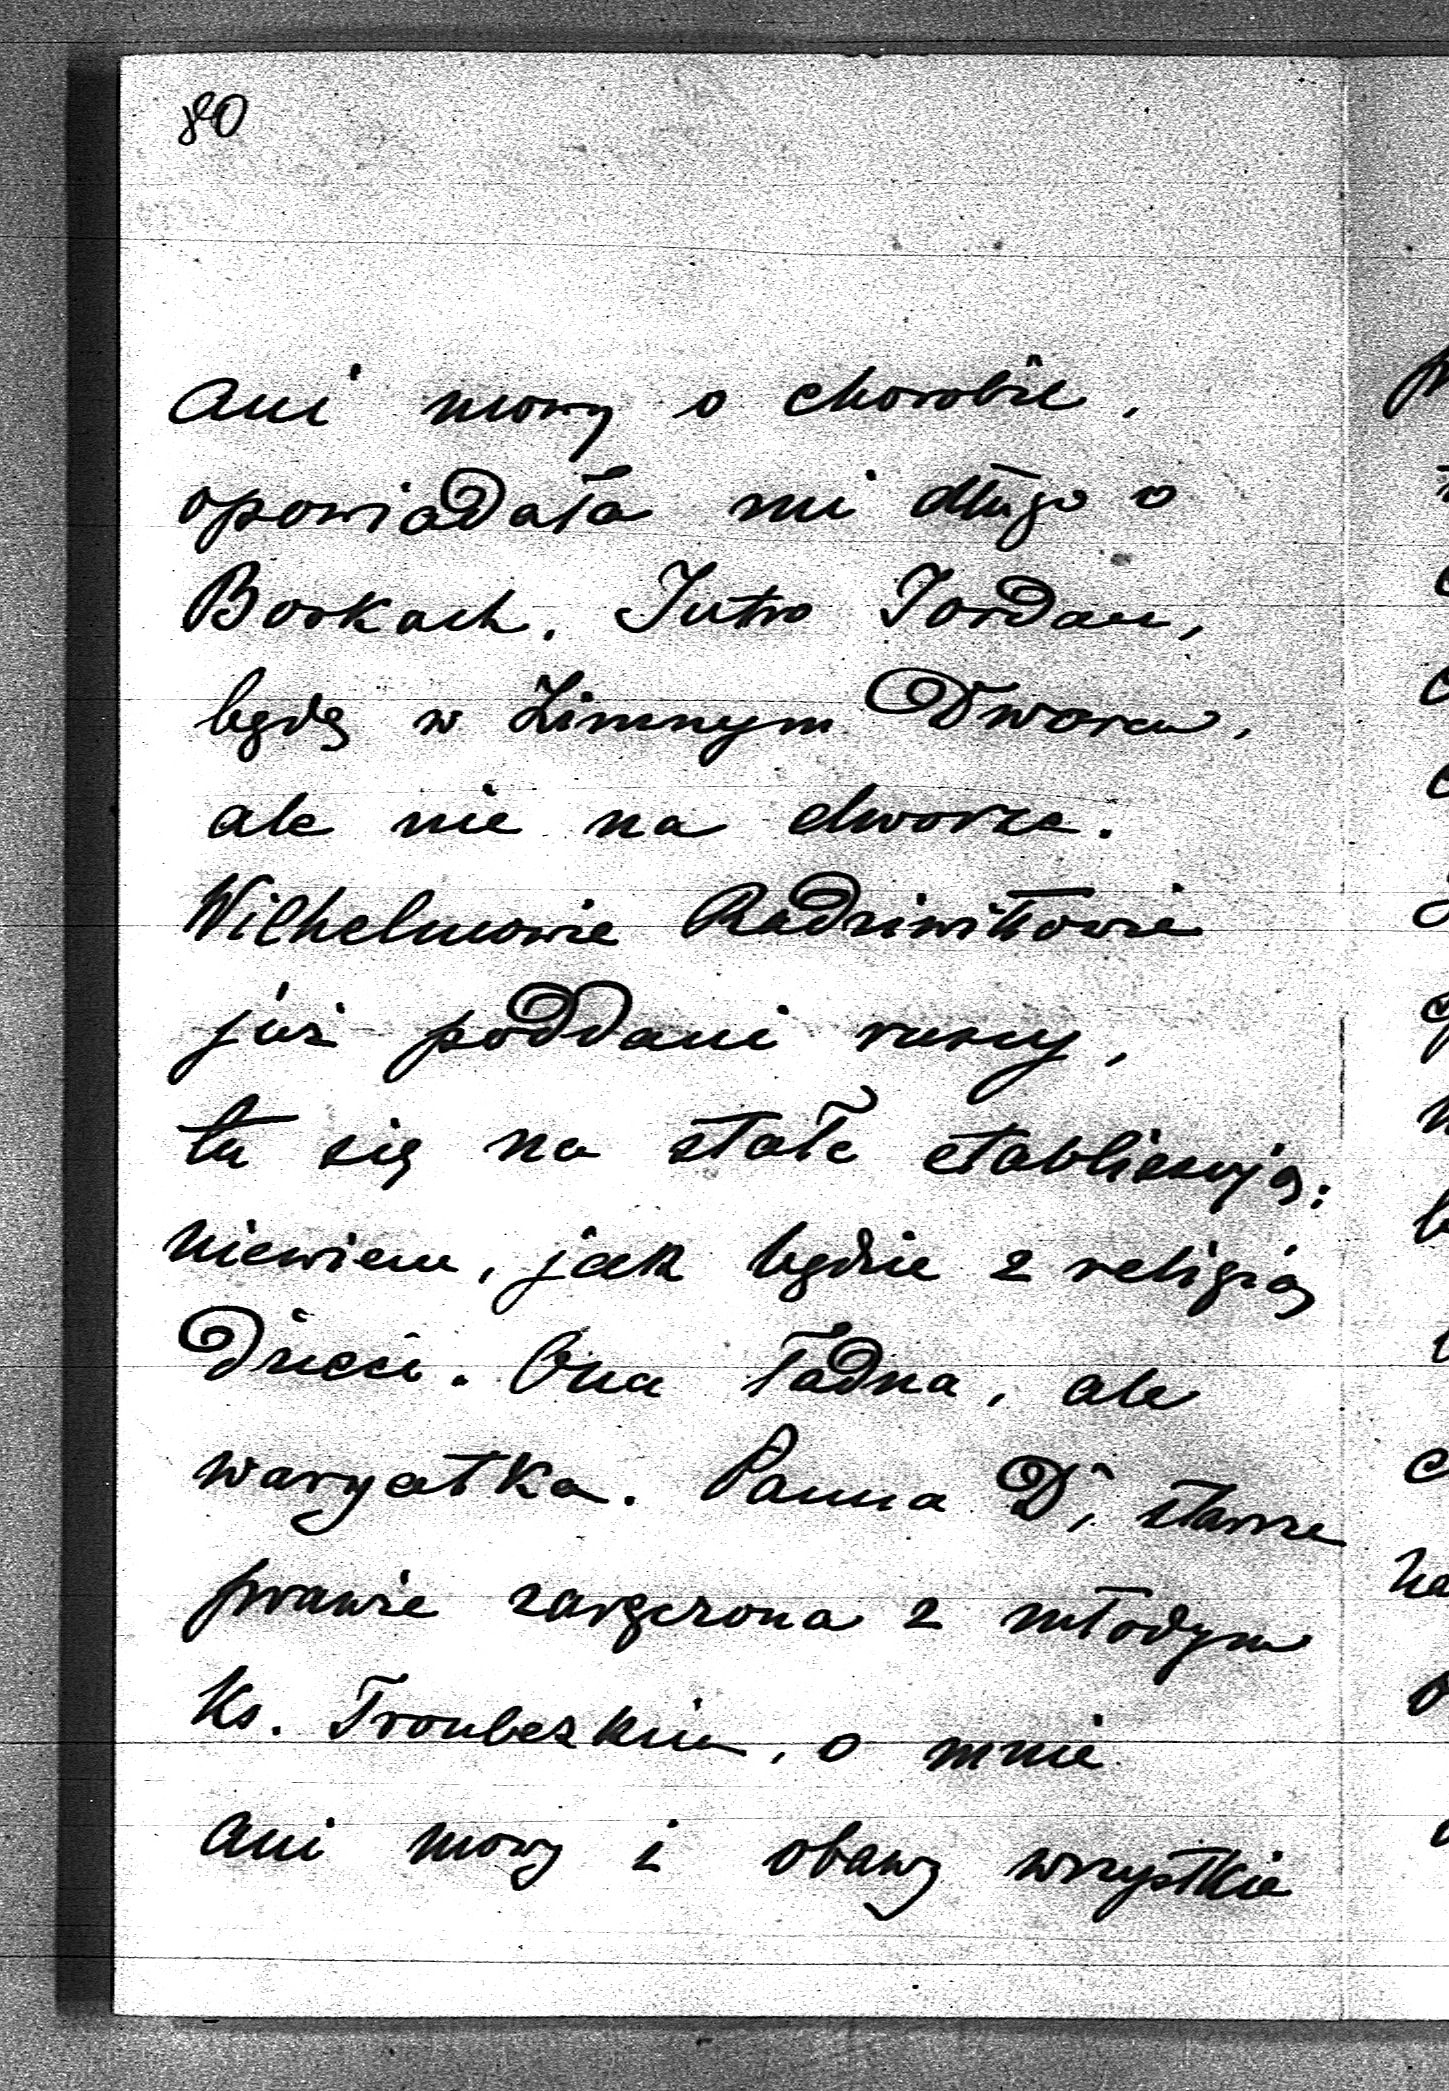 80
ani mowy o chorobie,
opowiadała mi długo o
Borkach. Jutro Jordan,
będę w Zimnym Dworcu,
ale nie na dworze.
Wilhelmowie Radziwiłłowie
już poddani ruscy,
tu się na stałe etablissują;
niewiem, jak będzie z religią
Dzieci. Ona ładna, ale
waryatka. Panna D; starsza
prawie zaręczona z młodym
Ks. Troubezkim, o mnie
ani mowy i obawy wszystkie